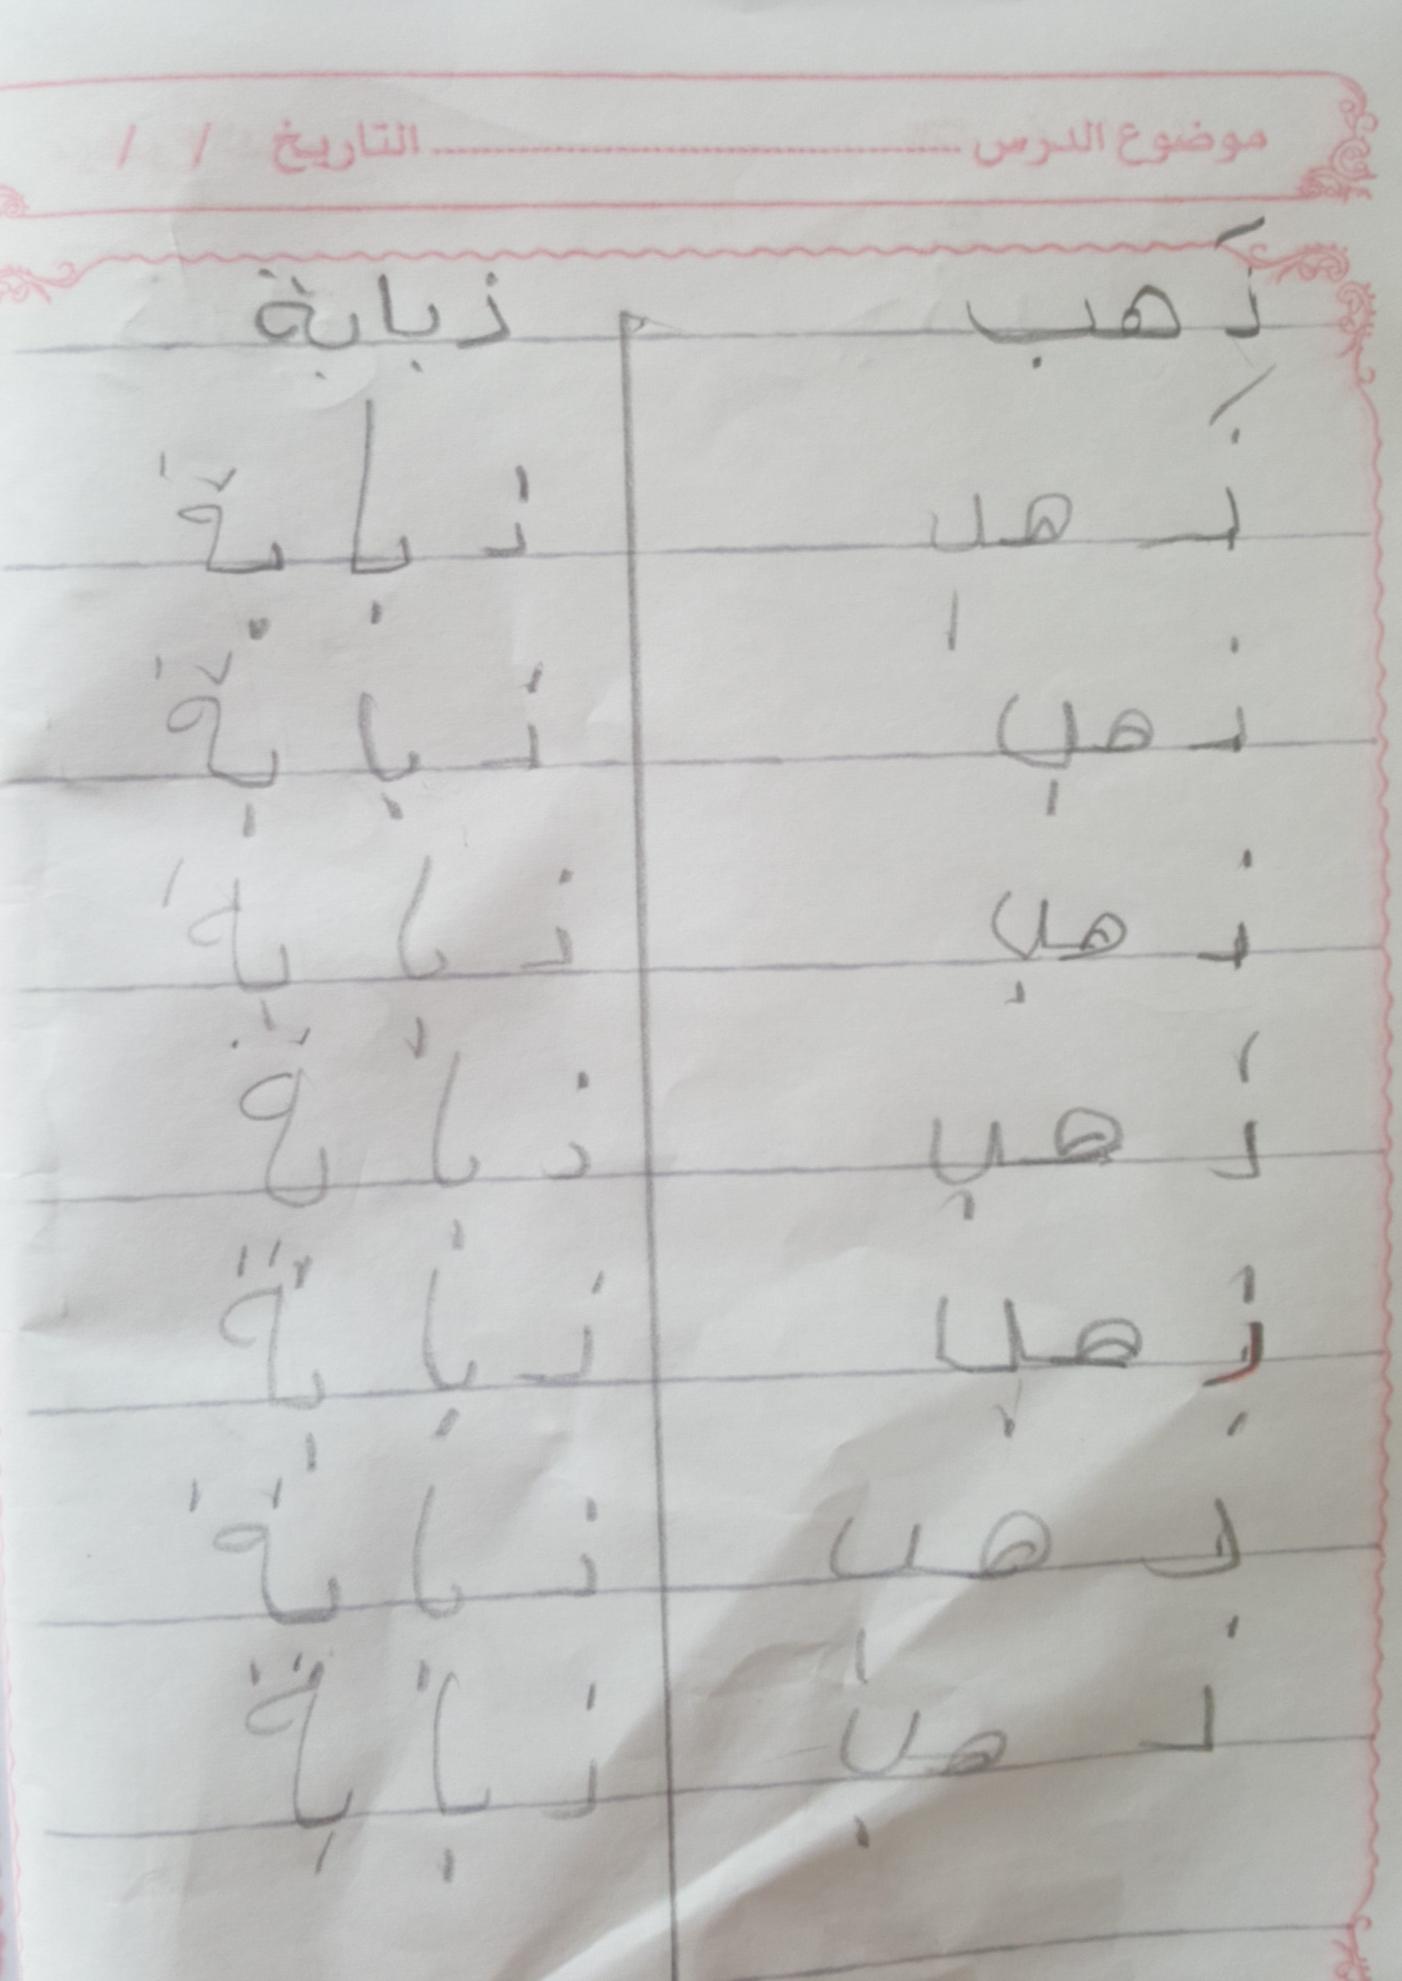 موضوع الدرس ........................ التاريخ / /
ذَهب ذبابة
ذَهب ذبابة
ذهب ذبابة
ذهب ذبابة
ذهب ذبابة
ذهب ذبابة
ذهب ذبابة
ذهب ذبابة